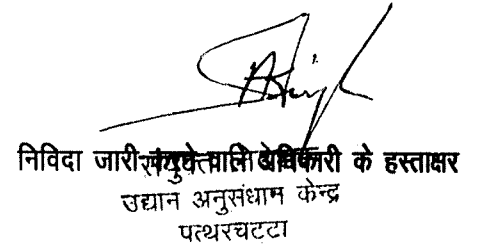 निविदा जारी करने वाले अधिकारी के हस्ताक्षर
संयुक्त निदेशक
उद्यान अनुसंधाम केन्द्र
पत्थरचटटा